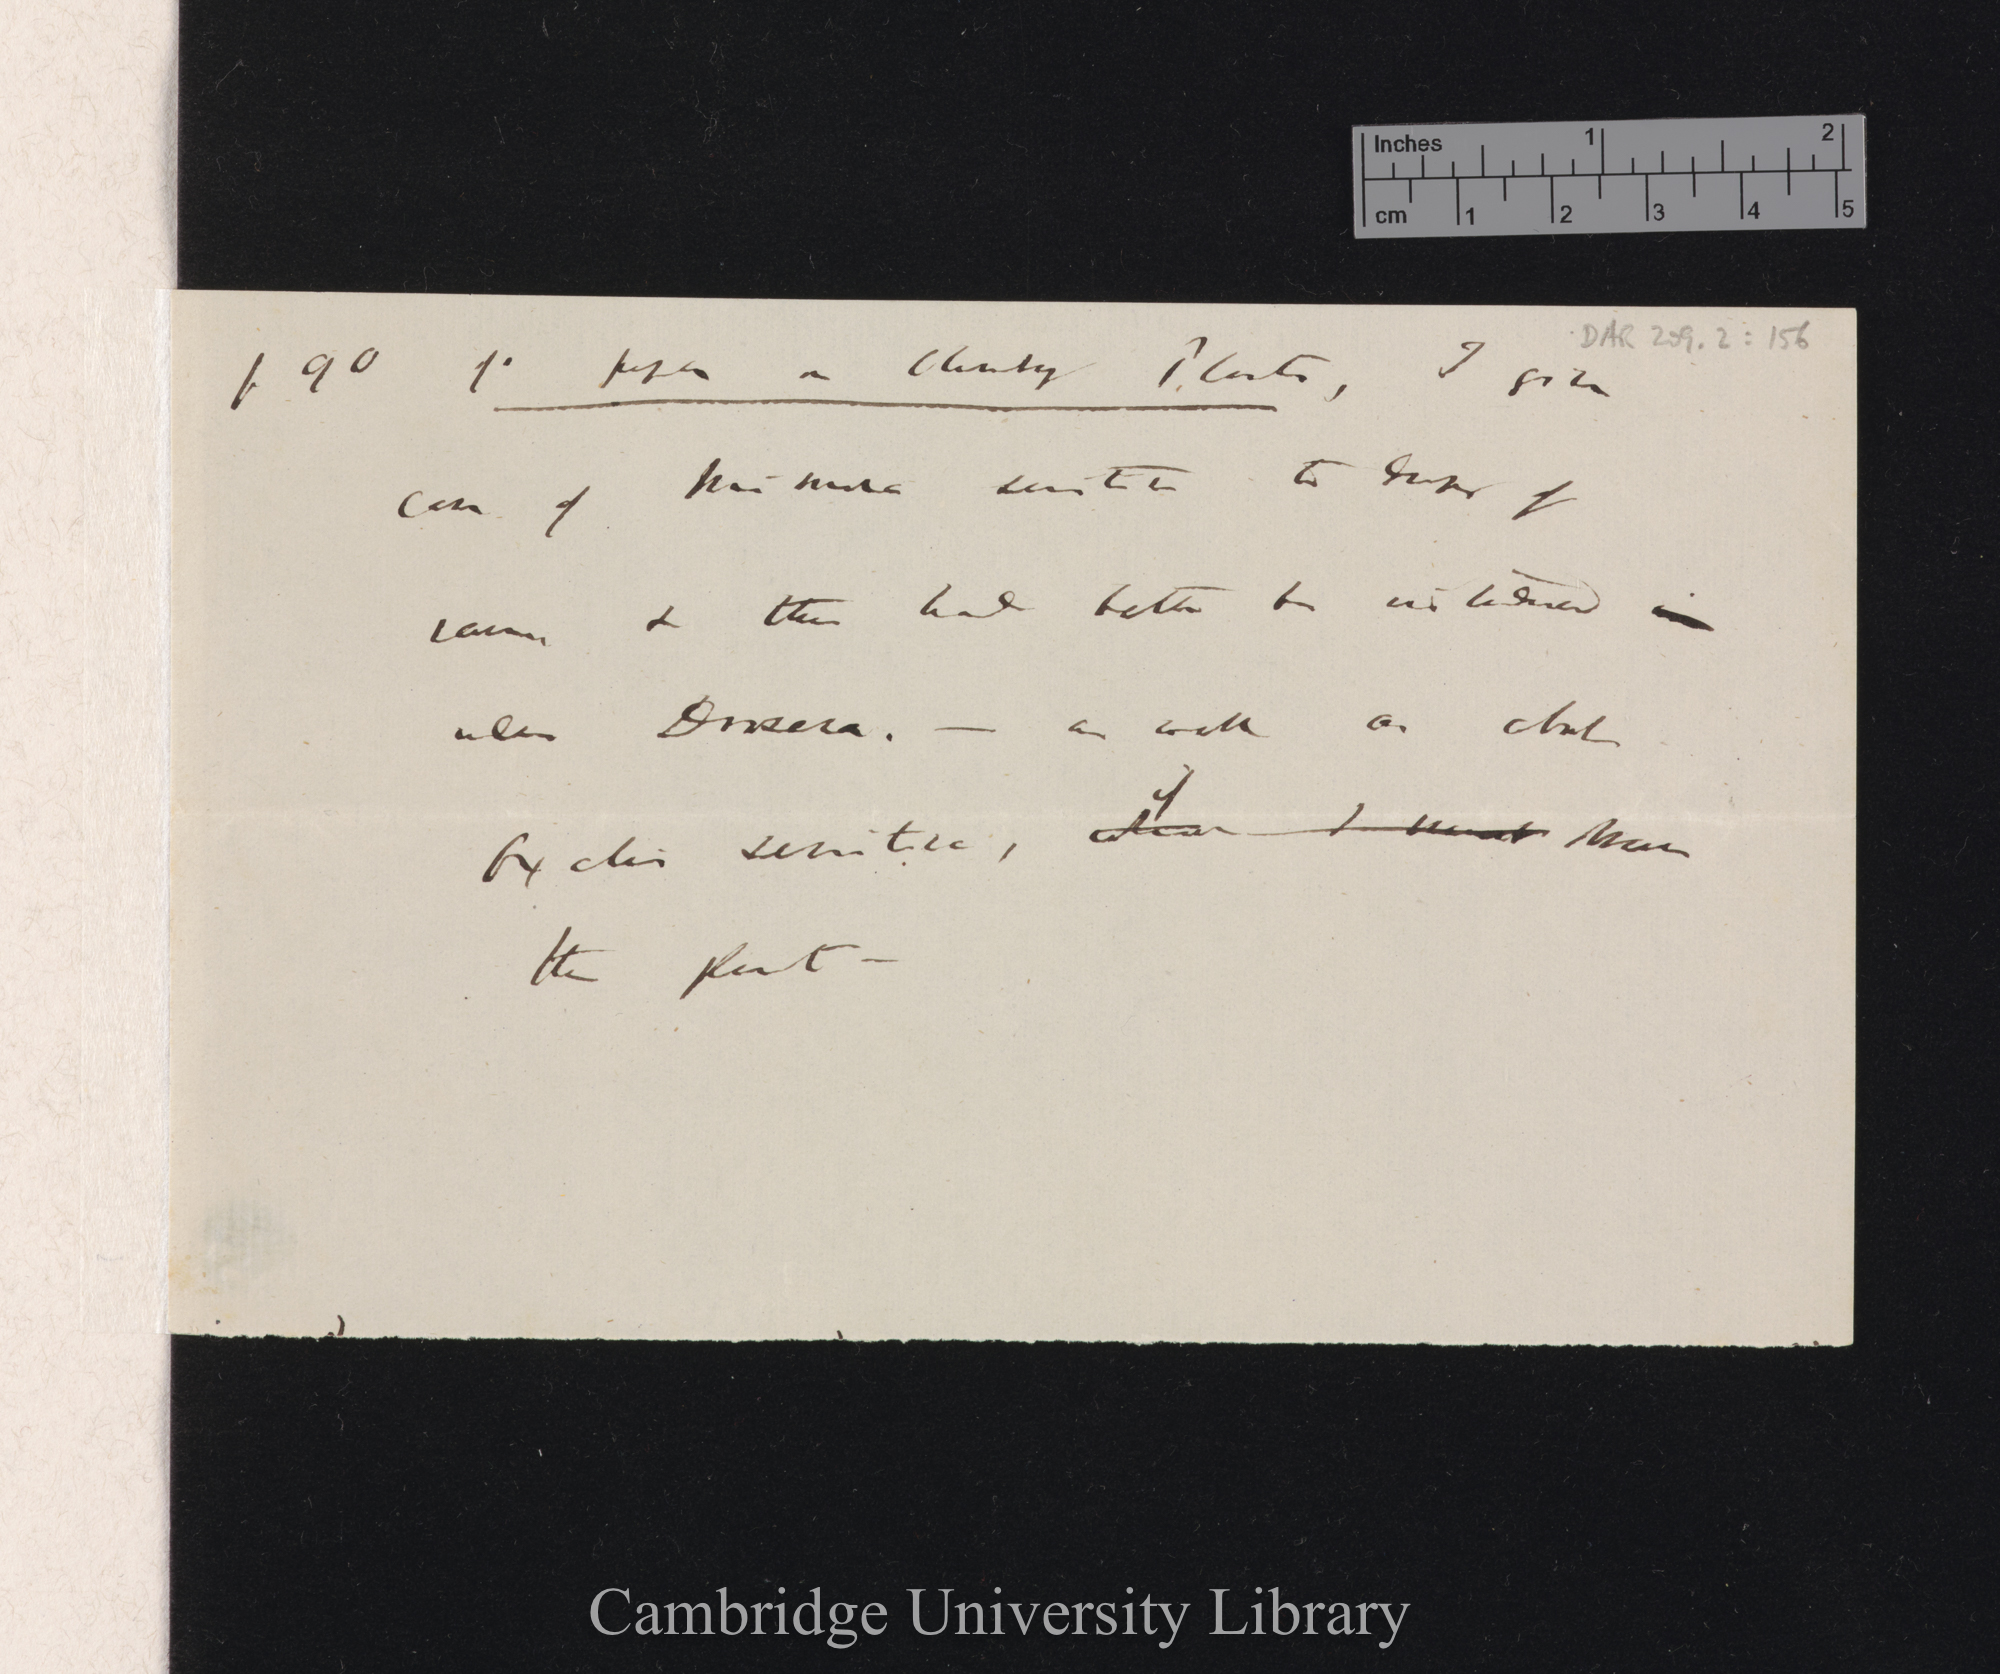 Inches 1 2
cm 1 2 3 4 5
DAR 209.2:156
p 90 of paper on Climbing Plants, I give
case of Mimosa sensitive to drops of
& this had better be introduced in
under Drosera. — as well as about
Oxalis sensitiva, if I must have
the plant —
Cambridge University Library